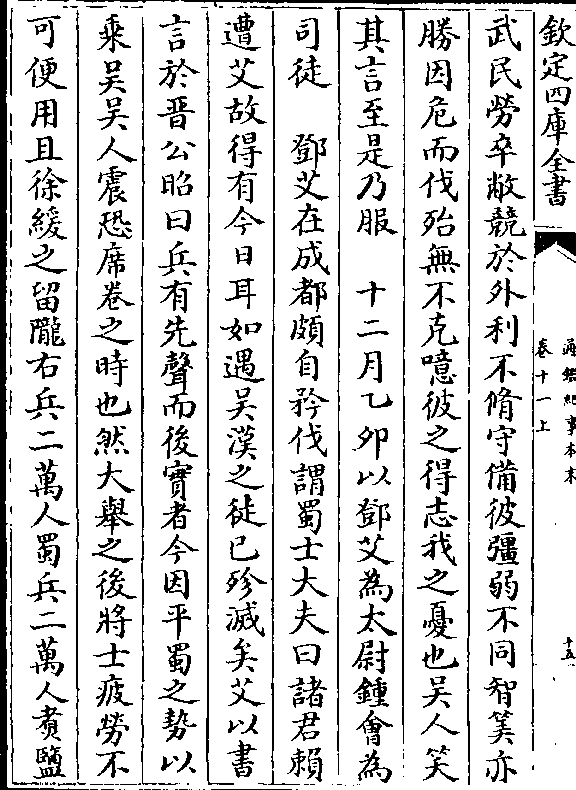 欽定四庫全書
通鑑紀事本末
卷十一上
十五
武民勞卒敝競於外利不脩守備彼彊弱不同智筭亦
勝因危而伐殆無不克噫彼之得志我之憂也吳人笑
其言至是乃服　十二月乙卯以鄧艾為太尉鍾會為
司徒　鄧艾在成都頗自矜伐謂蜀士大夫曰諸君賴
遭艾故得有今日耳如遇吳漢之徒已殄滅矣艾以書
言於晉公昭曰兵有先聲而後實者今因平蜀之勢以
乘吳吳人震恐席卷之時也然大舉之後將士疲勞不
可便用且徐緩之留隴右兵二萬人蜀兵二萬人煑鹽